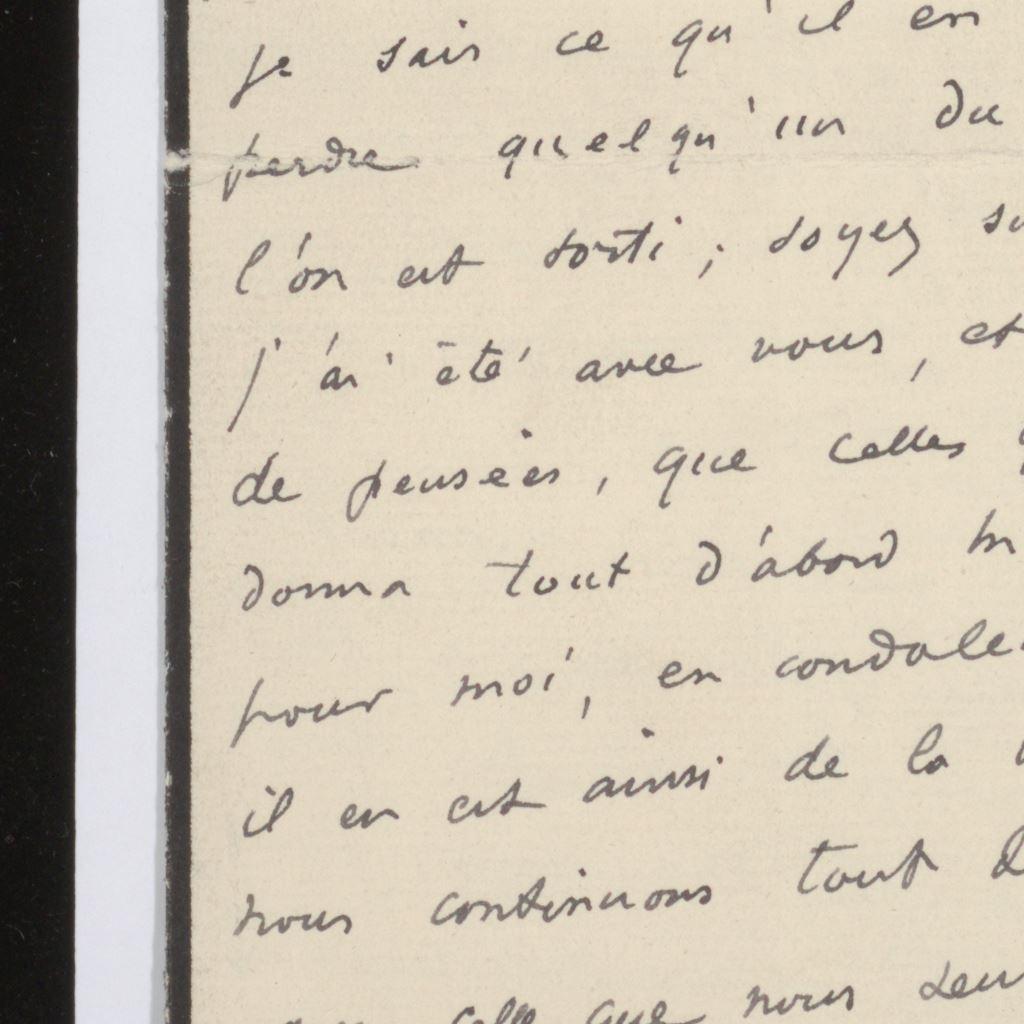 je sais ce qu'il en
perdre quelqu'un du
l'on est sorti ; soyez
j'ai été avec vous, et
de pensées, que celles
donna tout d'abord
pour moi, en
il en est ainsi de la
nous continuons tout
celle que nous